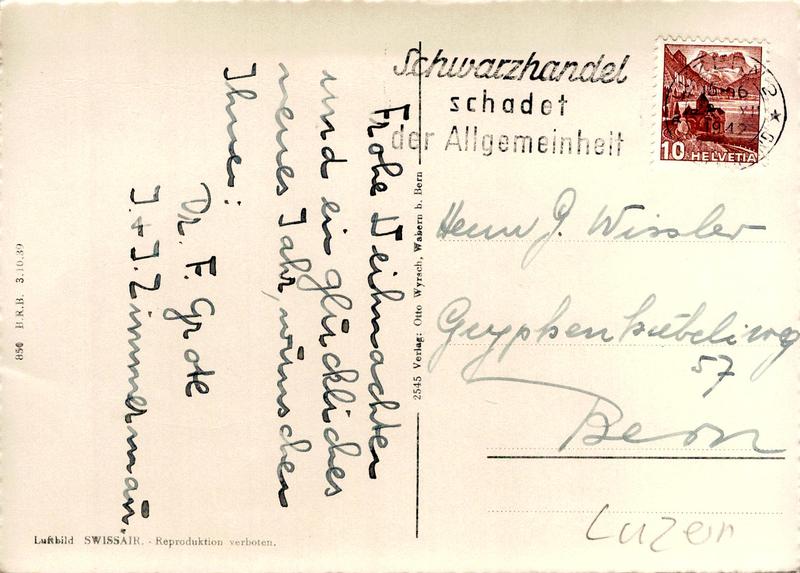 Schwarzhandel
schadet
der Allgemeinheit
1942
10 HELVETIA
Frohe Weihnachten
und ein glückliches
neues Jahr, wünschen
Ihnen:
Dr. F. Grote
J. + J. Zimmermann.
Herrn J. Wissler
Gryphenhübeliweg
57
Bern
Luzern
2545 Verlag: Otto Wyrsch, Wabern b. Bern
850 B.R.B. 3.10.39
Luftbild SWISSAIR. - Reproduktion verboten.